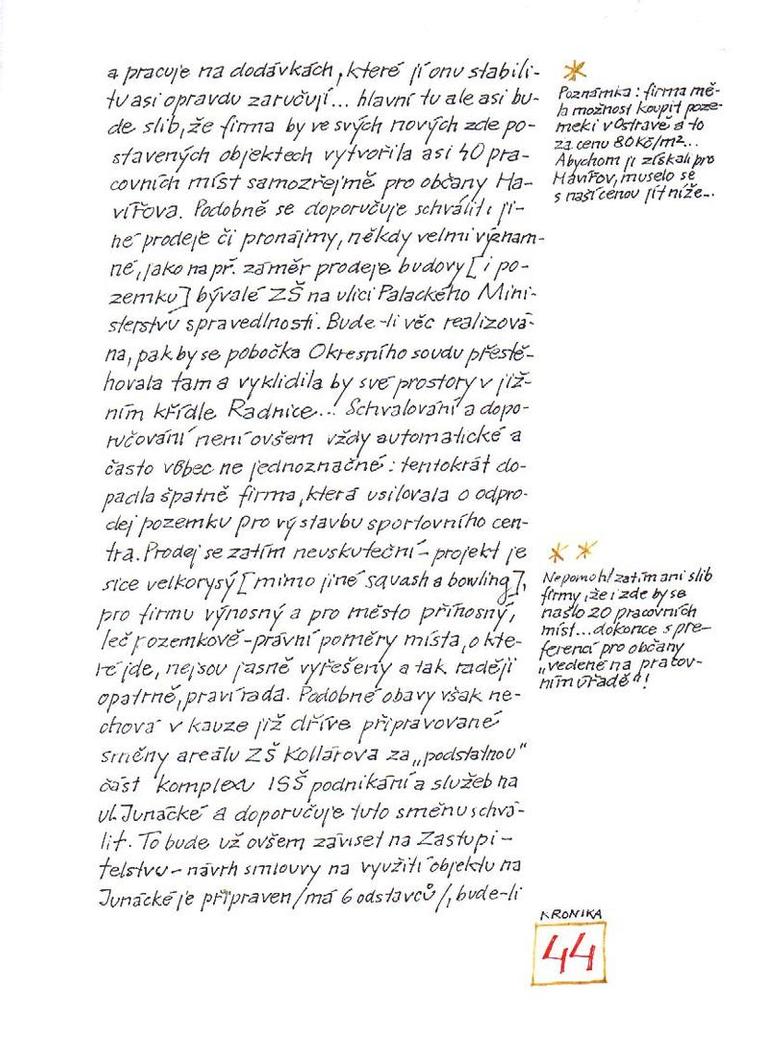 a pracuje na dodávkách, které jí onu stabili-
tu asi opravdu zaručují... hlavní tu ale asi bu-
de slib, že firma by ve svých nových zde po-
stavených objektech vytvořila asi 40 pra-
covních míst samozřejmě pro občany Ha-
vířova. Podobně se doporučuje schválit i ji-
né prodeje či pronájmy, někdy velmi význam-
né, jako např. záměr prodeje budovy [i po-
zemku] bývalé ZŠ na ulici Palackého Mini-
sterstvu spravedlnosti. Bude-li věc realizová-
na, pak by se pobočka Okresního soudu přestě-
hovala tam a vyklidila by své prostory v již-
ním křídle Radnice... Schvalování a dopo-
ručování není ovšem vždy automatické a
často vůbec ne jednoznačné: tentokrát do-
padla špatně firma, která usilovala o odpro-
dej pozemku pro výstavbu sportovního cen-
tra. Prodej se zatím neuskuteční - projekt je
sice velkorysý [mimo jiné squash a bowling],
pro firmu výnosný a pro město přínosný,
leč pozemkově-právní poměry místa, o kte-
ré jde, nejsou jasně vyřešeny a tak raději
opatrně, praví rada. Podobné obavy však ne-
chová v kauze již dříve připravované
směny areálu ZŠ Kollárova za „podstatnou"
část komplexu ISŠ podnikání a služeb na
ul. Junácké a doporučuje tuto směnu schvá-
lit. To bude už ovšem záviset na Zastupi-
telstvu - návrh smlouvy na využití objektu na
Junácké je připraven /má 6 odstavců/, bude-li
*
Poznámka: firma mě-
la možnost koupit poze-
mek i v Ostravě a to
za cenu 80 Kč/m²...
Abychom ji získali pro
Havířov, muselo se
s naší cenou jít níže...
* *
Nepomohl zatím ani slib
firmy, že i zde by se
našlo 20 pracovních
míst... dokonce s pre-
ferencí pro občany
„vedené na pracov-
ním úřadě"!
KRONIKA
44